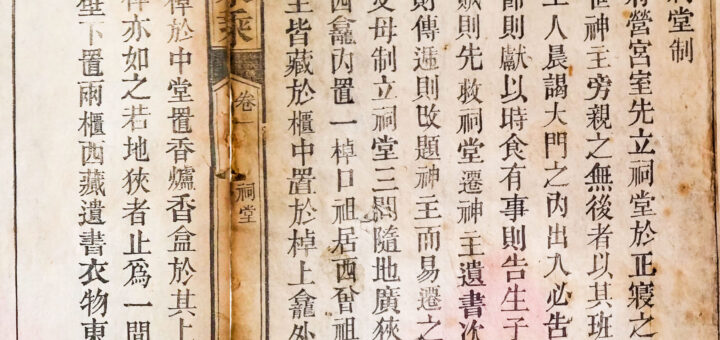 堂制
營宮室先立祠堂於正寢之
神主旁親之無後者以其班
主人晨謁大門之內出入必告
節則獻以時食有事則告生子
賊則先救祠堂遷神主遺書次
則傳遞則改題神主而易遷之
父母制立祠堂三間隨地廣狹
西龕內置一棹口祖居西曾祖
主皆藏於櫃中置於棹上龕外
乘
卷一
祠堂
棹於中堂置香爐香盒於其上
亦如之若地狹者止爲一間
壁下置兩櫃西藏遺書衣物東